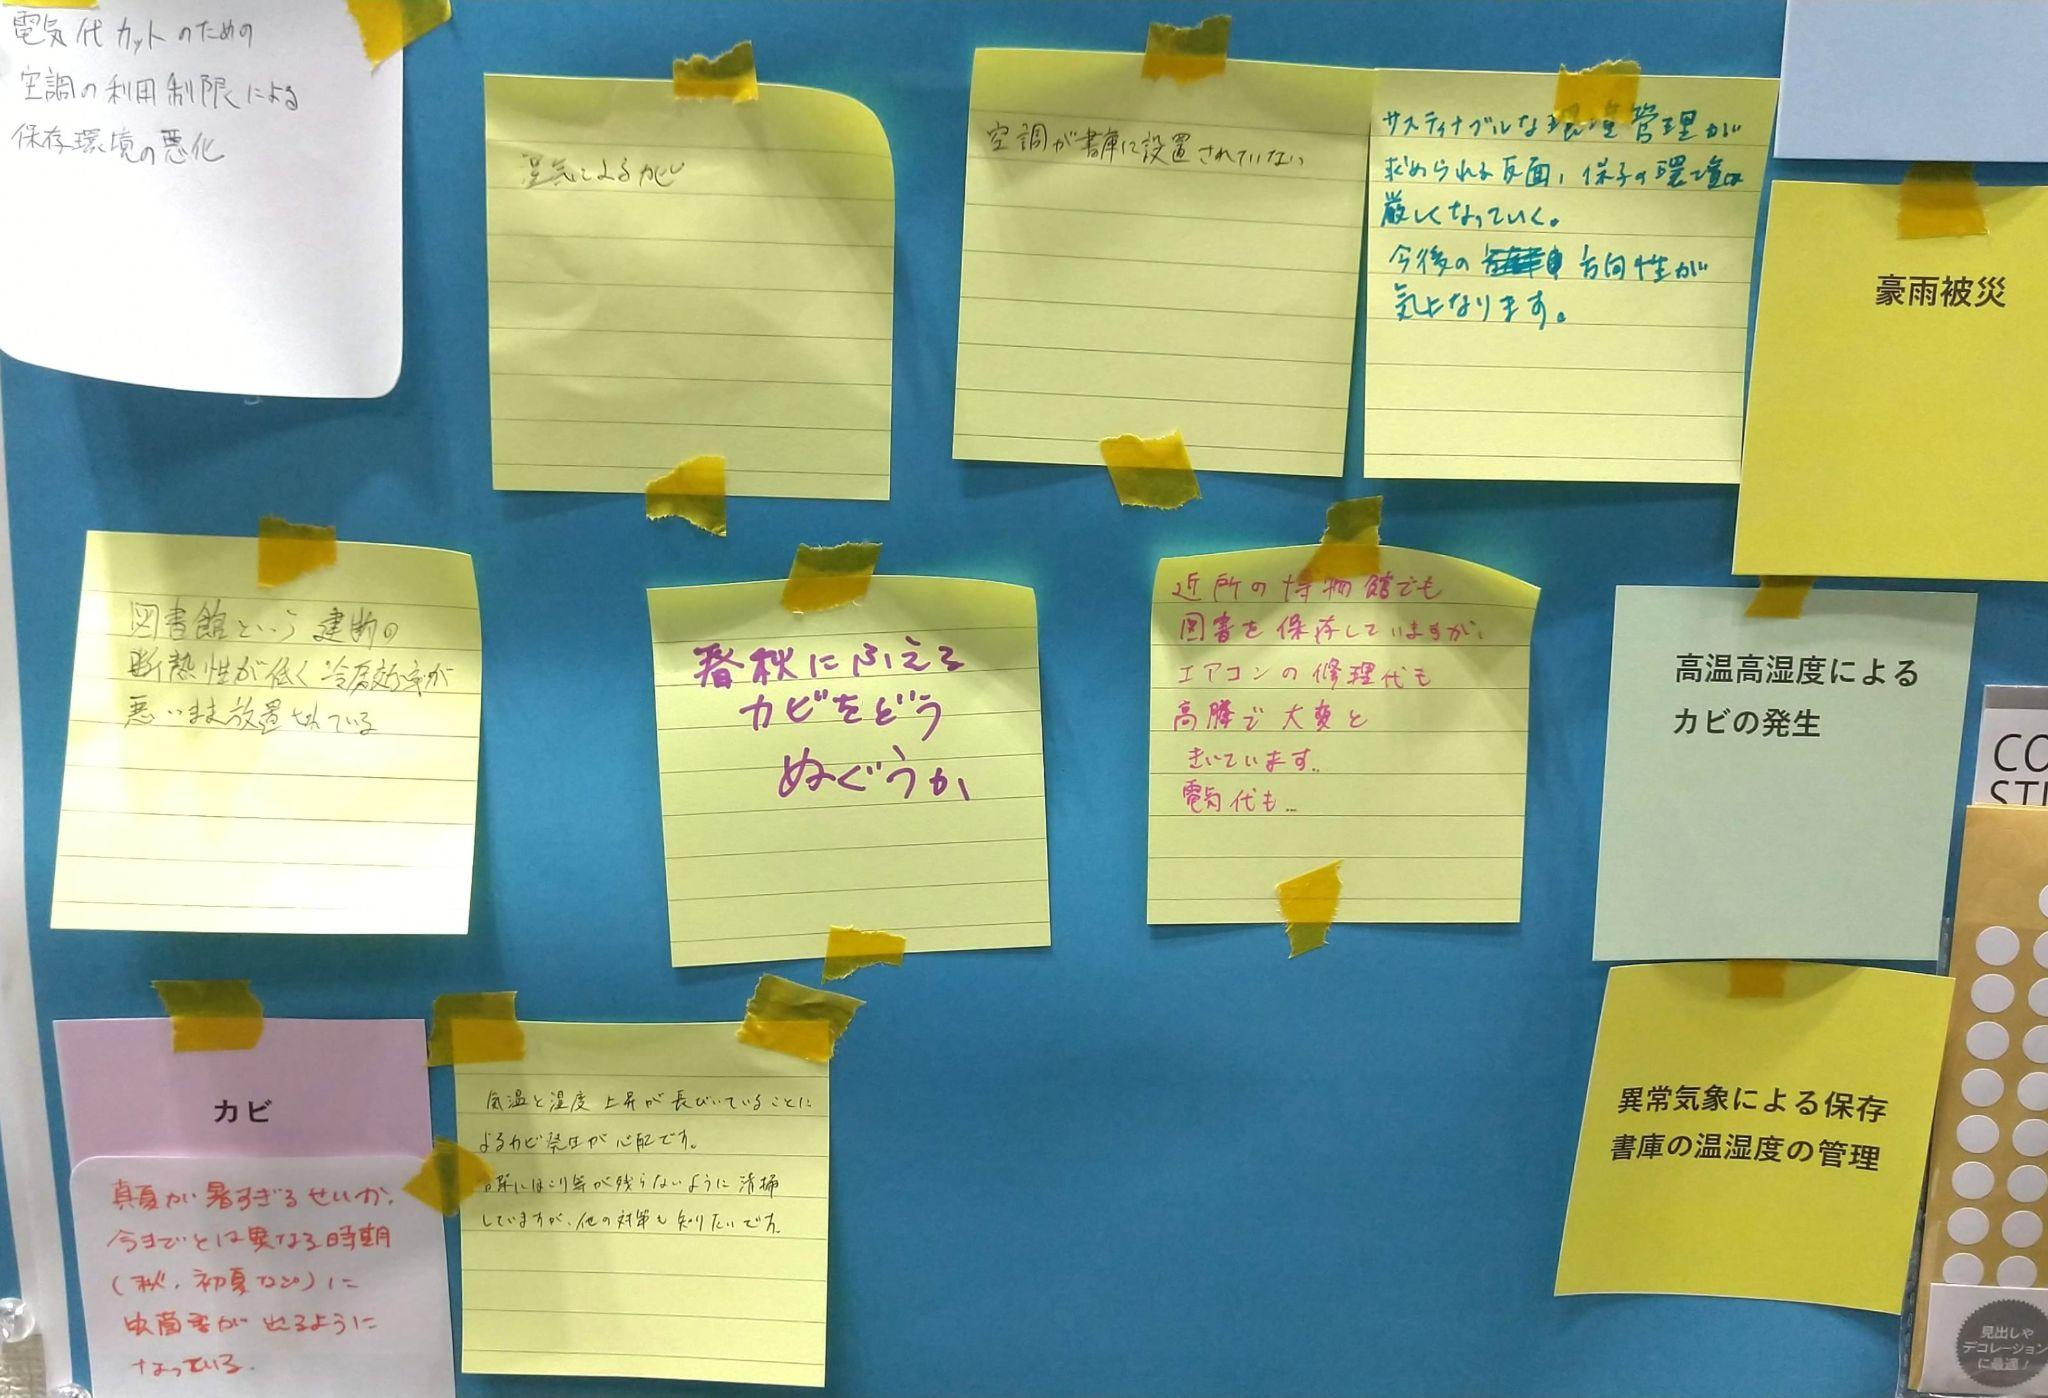 電気代カットのための
空調の利用制限による
保存環境の悪化
湿気によるカビ
空調が書庫に設置されていない
サスティナブルな環境管理が
求められる反面、保子の環境は
厳しくなっていく。
今後の 方向性が
気になります。
豪雨被災
図書館という建断の
断熱性が低く冷房効率が
悪いまま放置されている
春秋にふえる
カビをどう
ぬぐうか
近所の博物館でも
図書を保存していますが、
エアコンの修理代も
高騰で大変と
きいています..
電気代も...
高温高湿度による
カビの発生
カビ
真夏が暑すぎるせいか、
今までとは異なる時期
(秋、初夏など)に
虫菌害が出るように
なっている.
気温と湿度上昇が長びいていることに
よるカビ発生が心配です。
にほこり等が残らないように清掃
していますが、他の対策も知りたいです。
異常気象による保存
書庫の温湿度の管理
CO
STI
見出しや
デコレーション
に最適!